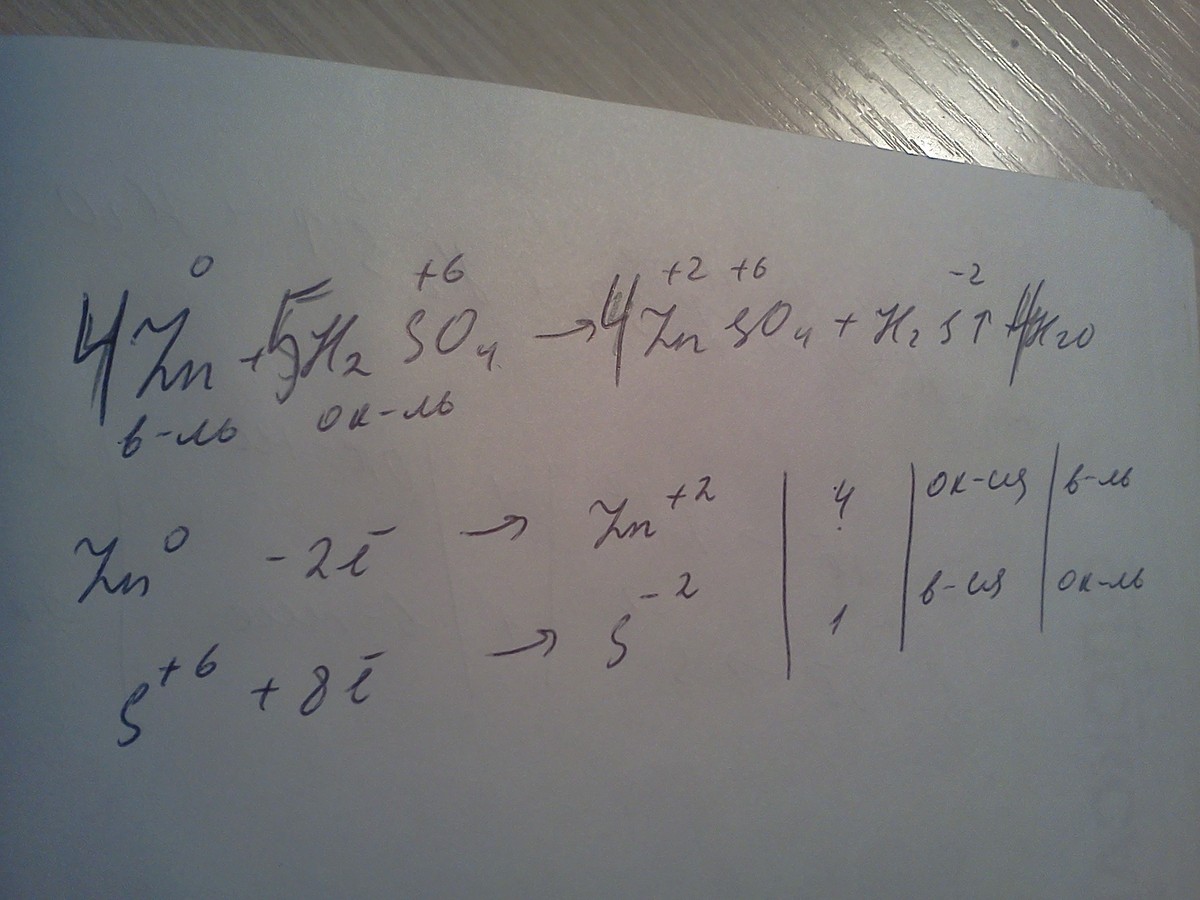 0 +6 +2 +6 -2
4Zn + 5H₂SO₄ → 4ZnSO₄ + H₂S↑ 4H₂O
в-ль ок-ль
Zn⁰ -2ē → Zn⁺² | 4 | ок-ся | в-ль
S⁺⁶ + 8ē → S⁻² | 1 | в-ся | ок-ль